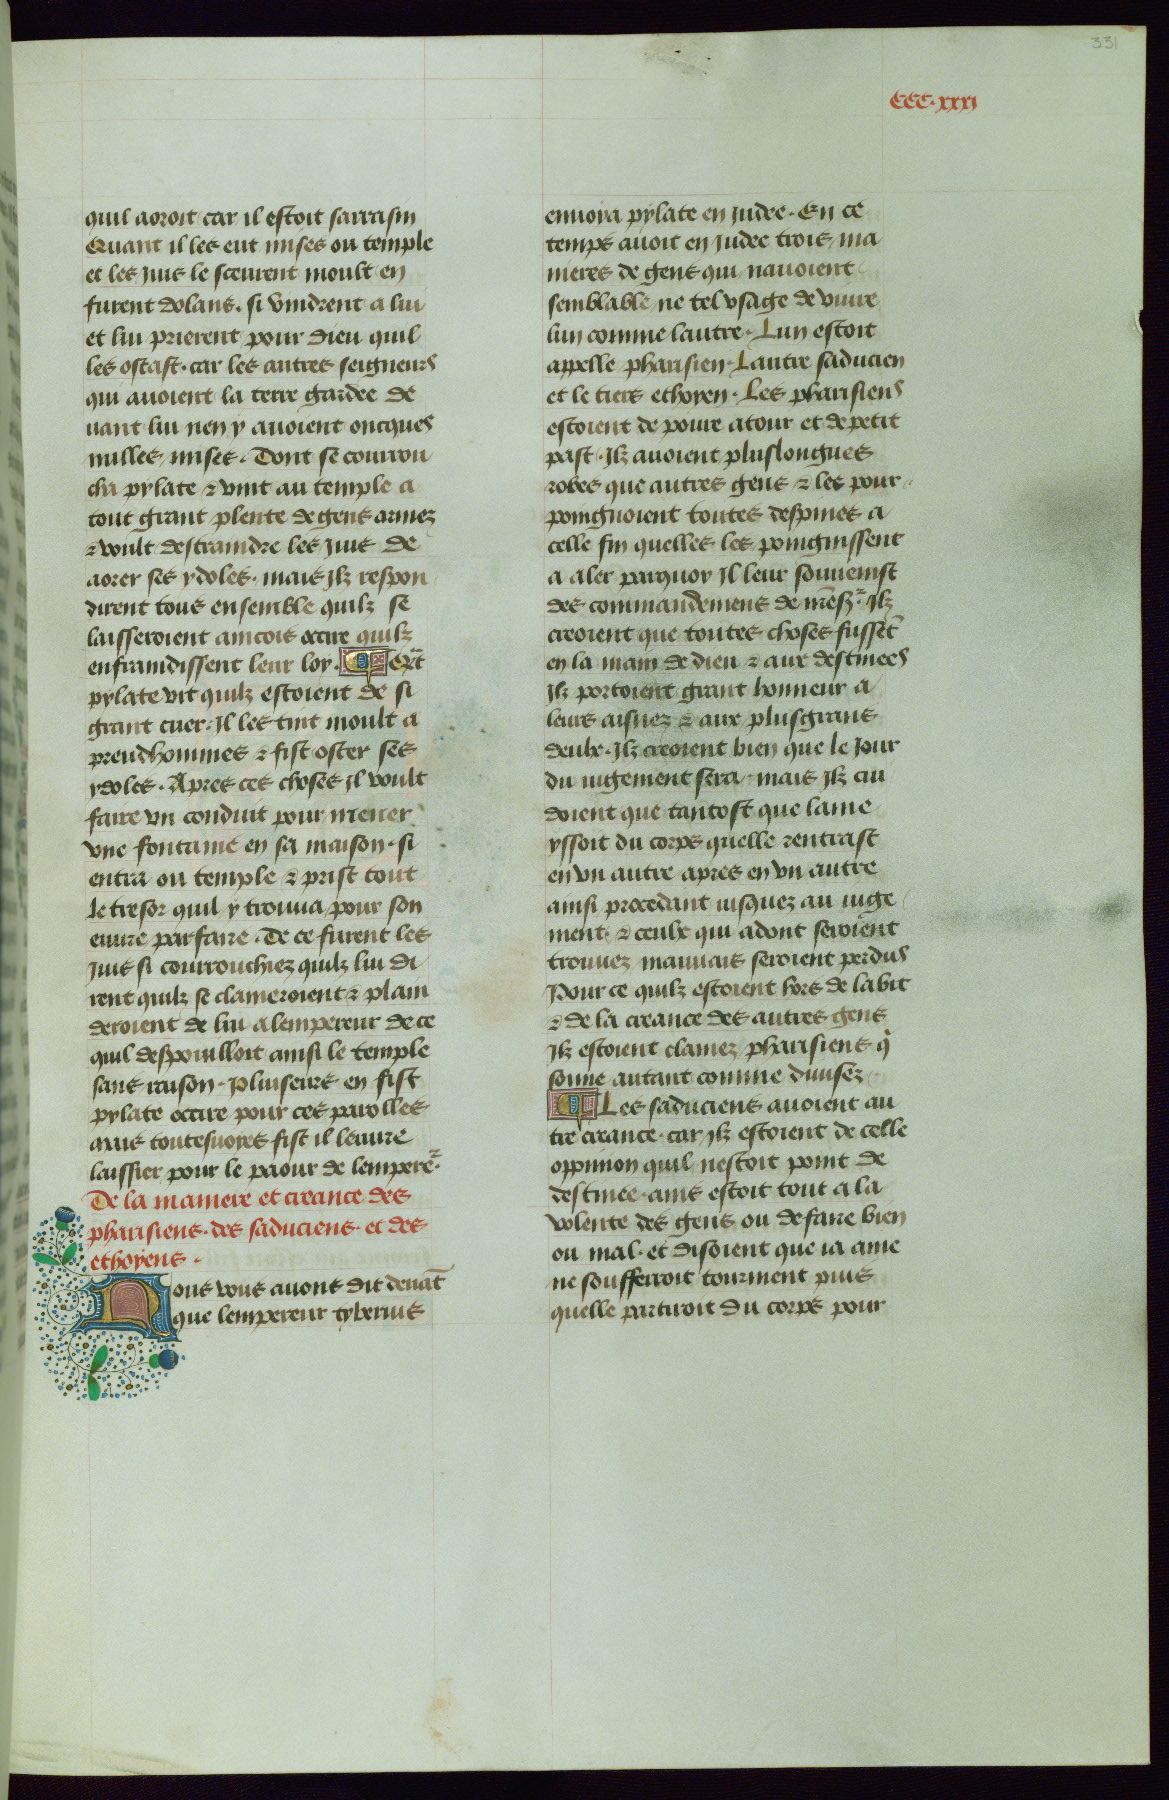 331
CCC.xxxi
quil aoroit car il estoit sarrasin
Quant il les eut mises ou temple
et les juis le sceurent moult en
furent dolans. si vindrent a lui
et lui prierent pour dieu quil
les ostast. car les autres seigneurs
qui auoient la terre gardee de
uant lui nen y auoient oncques
nulles mises. Dont se courrou
cha pylate ⁊ vint au temple a
tout grant plente de gens armez
⁊ voult destraindre les juis de
aorer ses ydoles. mais jlz respon
dirent tous ensemble quilz se
laisseroient aincois occire quilz
enfraindissent leur loy. Quāt
pylate vit quilz estoient de si
grant cuer. Il les tint moult a
preudhommes ⁊ fist oster ses
ydoles. Apres ces choses jl voult
faire vn conduit pour mener
vne fontaine en sa maison. si
entra ou temple ⁊ prist tout
le tresor quil y trouua pour son
euure parfaire. De ce furent les
juis si courrouchiez quilz lui di
rent quilz se clameroient ⁊ plain
deroient de lui a lempereur de ce
quil despouilloit ainsi le temple
sans raison. Pluiseurs en fist
pylate occire pour ces parolles
mais toutesuoyes fist il leuure
laissier pour le paour de lemperer̃.
De la maniere et creance des
pharisiens. des saduciens. et des
ethoyens.
Nous vous auons dit deuāt
que lempereur tyberius
enuoya pylate en judee. En ce
temps auoit en judee trois ma
nieres de gens qui nauoient
semblable ne tel vsage de viure
lun comme lautre. Lun estoit
appelle pharisien. Lautre saducien
et le tiers ethoyen. Les pharisiens
estoient de poure atour et de petit
past. Jlz auoient pluslongues
robes que autres gens ⁊ les pour
poingnoient toutes despines a
celle fin quelles les poingnissent
a aler parquoy Il leur souuenist
des commandemens de nr̄es̃. Jlz
creoient que toutes choses fussēt
en la main de dieu ⁊ aux destinees
Jlz portoient grant honneur a
leurs aisnez ⁊ aux plusgrans
deulx. Jlz creoient bien que le Jour
du iugement sera. mais Jlz cui
doient que tantost que lame
yssoit du corps quelle rentrast
en vn autre apres en vn autre
ainsi procedant iusquez au iuge
ment. ⁊ ceulx qui adont seroient
trouuez mauuais seroient perdus
Pour ce quilz estoient hors de labit
⁊ de la creance des autres gens
Jlz estoient clamez pharisiens q̇
sonne autant comme diuisez
Les saduciens auoient au
tre creance. car jlz estoient de celle
oppinion quil nestoit point de
destinee. ains estoit tout a la
volente des gens ou de faire bien
ou mal. et disoient que ia ame
ne soufferroit tourment puis
quelle partiroit du corps pour